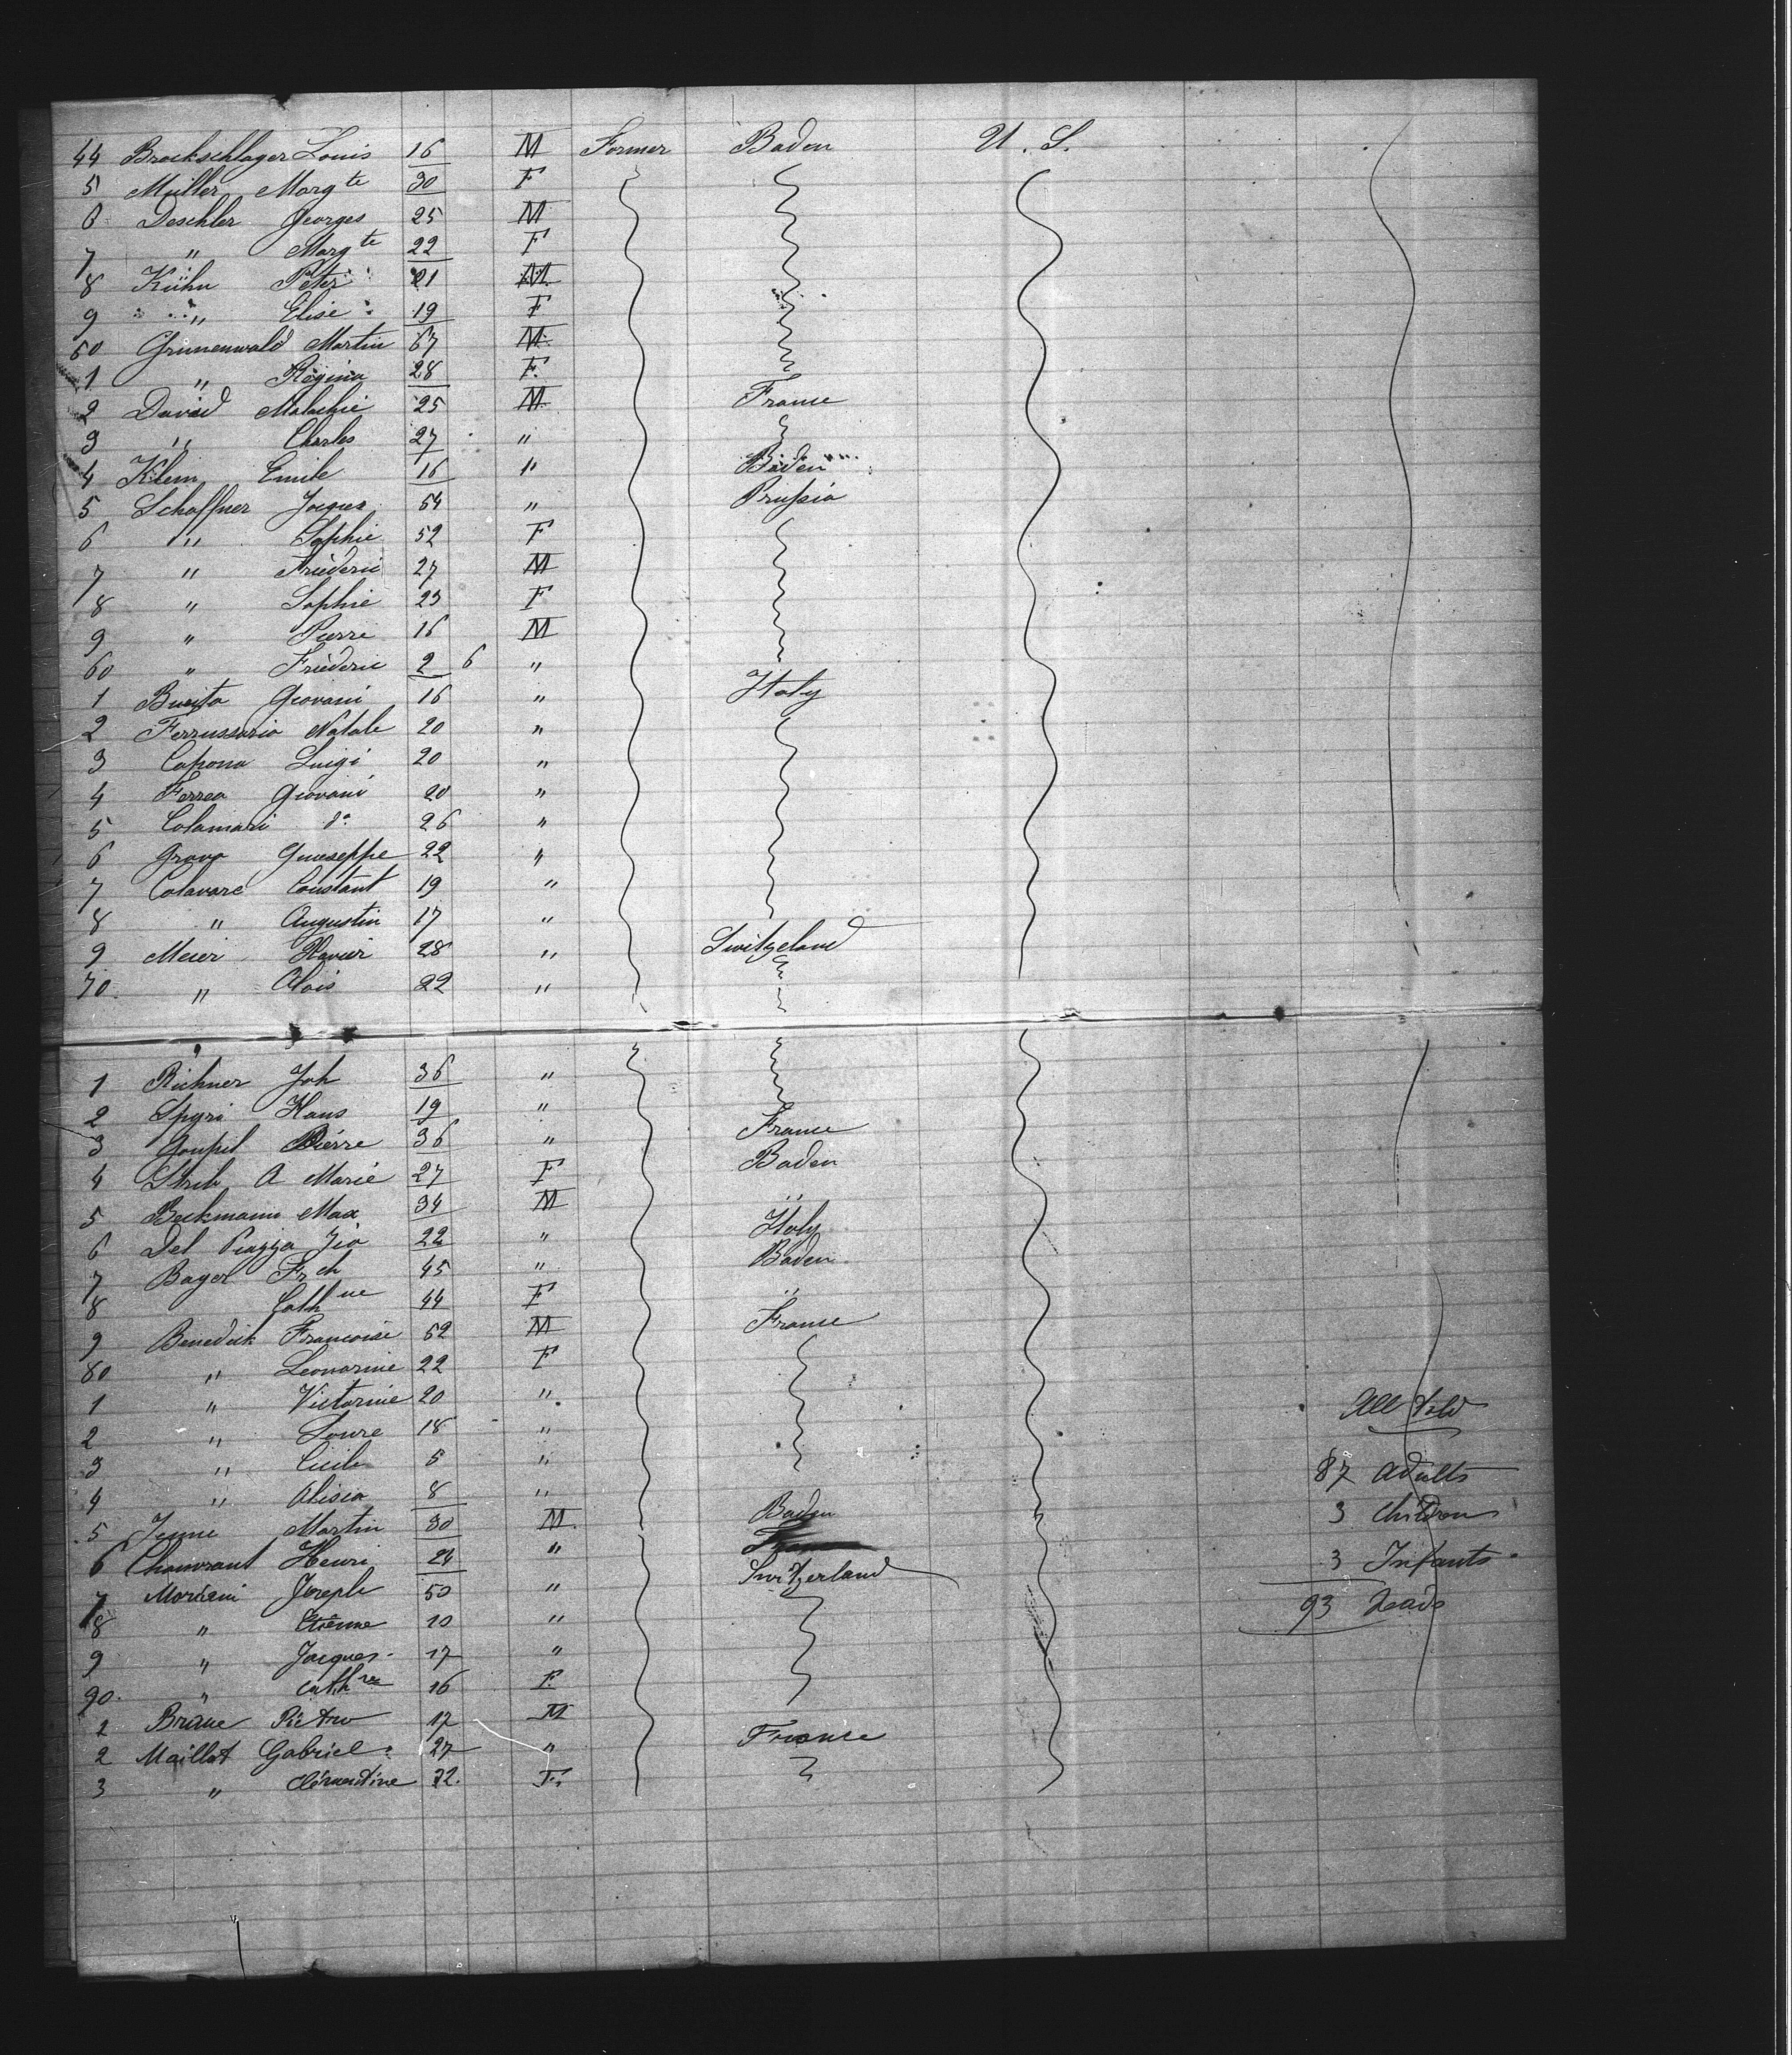 44 Brockschlager Louis 16 M Former Baden U. S.
5 Müller Marg te 30 F
6 Deschler Georges 25 M
7 " Marg te 22 F
8 Kühn Peter 21 M
9 " Elise 19 F
50 Grunenwald Martin 67 M
1 " Régina 28 F.
2 David Malachie 25 M France
3 " Charles 27 "
4 Klem Emile 16 " Baden
5 Schaffner Jacques 54 " Prussia
6 " Sophie 52 F
7 " Fréderic 27 M
8 " Sophie 23 F
9 " Pierre 16 M
60 " Fréderic 2 6 "
1 Giovani 16 " Italy
2 Natale 20 "
3 Capona Luigi 20 "
4 Ferrea Giovani 20 "
5 Colamari do 26 "
6 Grava Guiseppe 22 "
7 Colavare Constant 19 "
8 " Augustin 17 "
9 Meier Xavier 28 " Switzeland
70 " Alois 22 "
1 Richner Joh 36 "
2 Spyri Hans 19 "
3 Goupil Pierre 36 " France
4 Strib A Marie 27 F Baden
5 Beckmann Max 34 M "
6 Del Piazza Gio 22 " Italy
7 Bayer Fr ch 45 " Baden
8 Cath ne 44 F "
9 Benedick Francoise 52 M France
80 " Leonarine 22 F
1 " Victorine 20 "
2 " Laure 18 "
All told
3 " Cicile 5 "
87 adults
4 " Alisia 8 "
5 Jenne Martin 30 M Baden
3 Children
6 Chamrant Henri 24 "
3 Infants
7 Moriani Joseph 50 " Switzerland
93 heads
8 " Etienne 10 "
9 " Jacques 17 "
90 " Cath ne 16 F.
1 Braue Pietro 17 M
2 Maillat Gabriel 27 " France
3 " Clémentine 22. F.